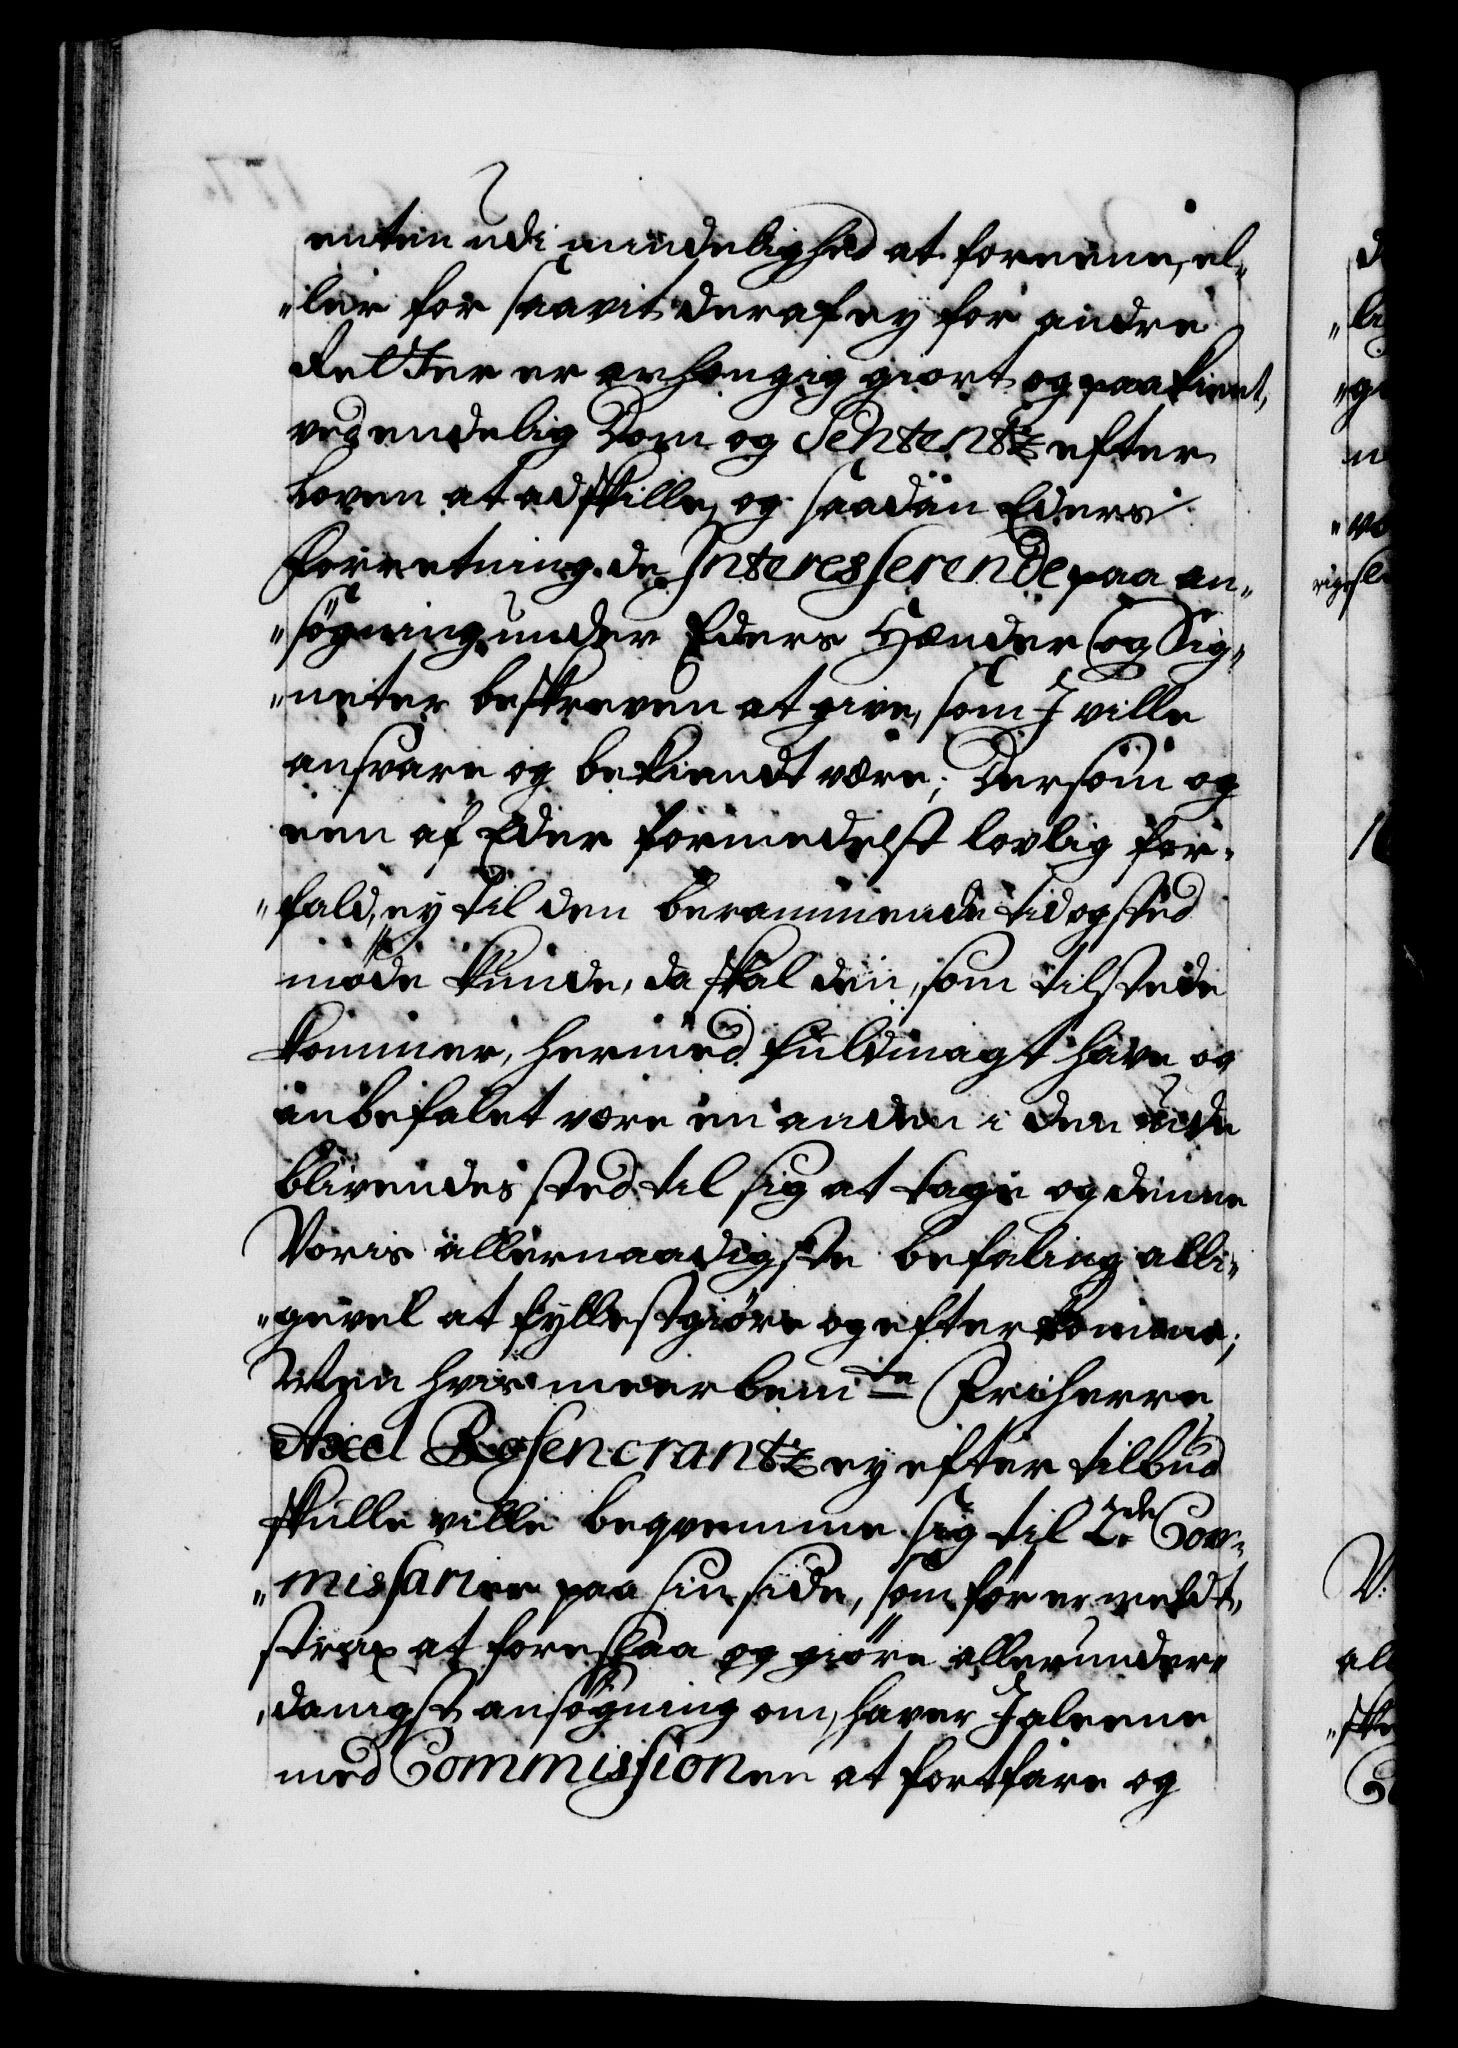 enten udi mindelighed at foreene, el-
"ler for saavit deraf ey for andre
Retter er anhengig giort og paakient,
ved endelig Dom og Sententz efter
Loven at adskille, og saadan Eders
Forretning de Interesserende paa an-
"søgning under Eders Hænder og Sig-
"neter beskreven at give, som I ville
ansvare og bekiendt være; Dersom og
een af Eder formedelst lovlig for-
"fald, ey til den berammende tid og sted
møde kunde, da skal den, som tilstede
kommer, hermed fuldmagt have og
anbefalet være en anden i den ude
blivendes sted til sig at tage og denne
Voris allernaadigste befaling alli-
"gevel at fyllestgiøre og efterkomme;
Men hvis meerbemte Friherre
Axel Rosencrantz ey efter tilbud
skulle ville beqvemme sig til 2de Com-
"missarier paa sin side, som før er meldt,
strax at foreslaa og giøre allerunder-
"danigst ansøgning om, haver I aleene
med Commissionen at fortfare og